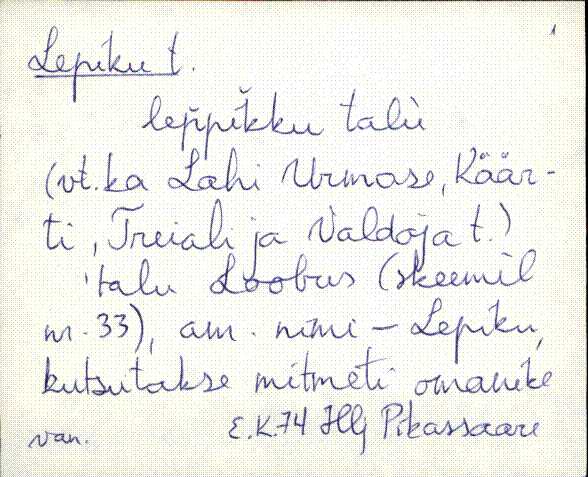 Lepiku t.
lep̆pĭkku talù
(vt. ka Lahi Urmase, Käär-
ti, Treiali ja Valdoja t.)
'talu Loobus (skeemil
nr. 33), am. nimi – Lepiku,
kutsutakse mitmeti omanike
van. E.K.74 Hlj Pikassaare